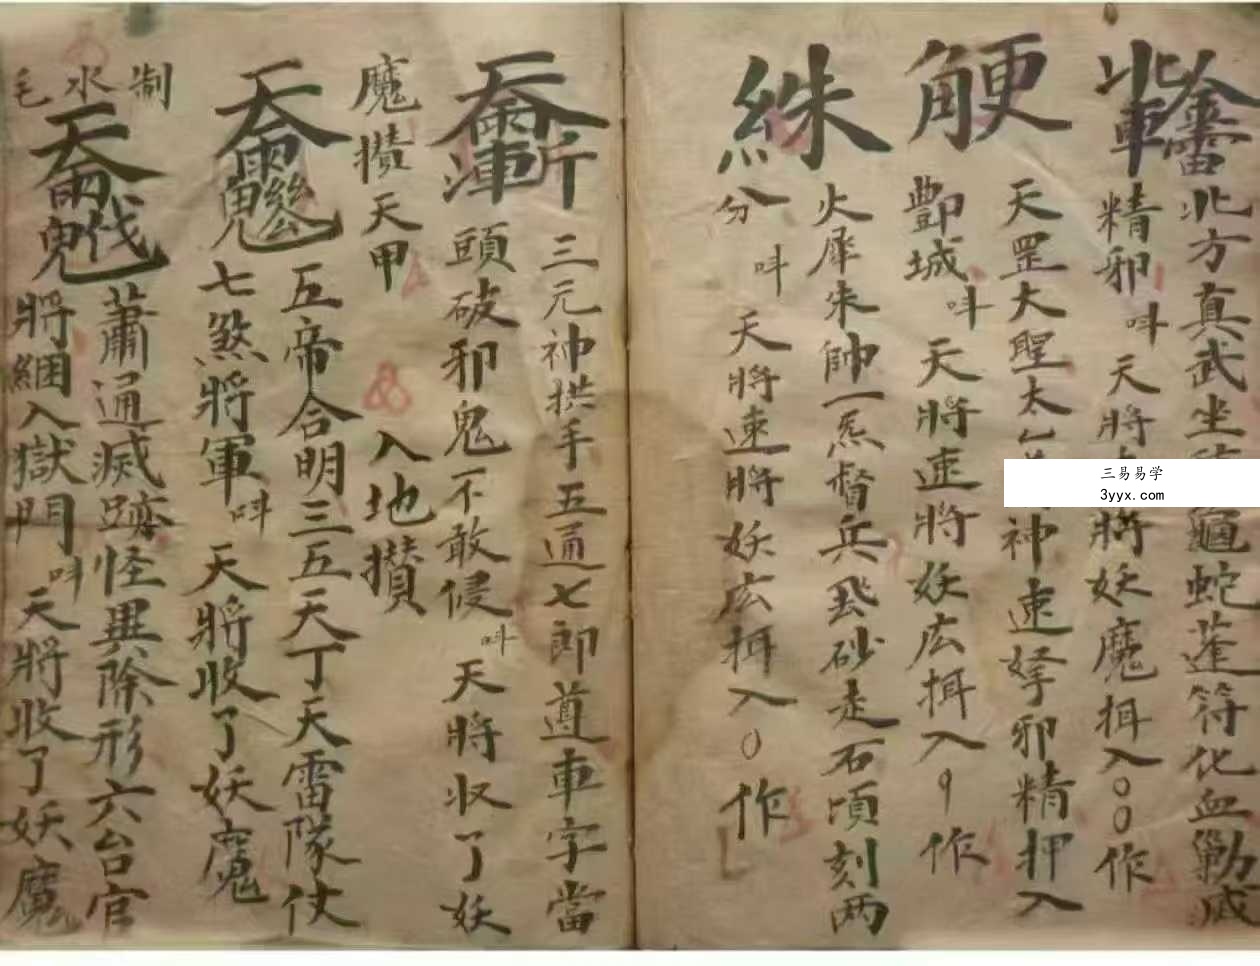 北方真武坐
龜蛇蓬符化血勦滅
精邪 呌 天將
將妖魔押入〇〇作
天罡大聖太乙
神速拏邪精押入
酆城 呌 天將速將妖広押入 作
絑
火犀朱帥一炁督兵飛砂走石頃刻两
分 呌 天將速將妖広押入〇作
三易易学
3yyx.com
三元神拱手五通七郎遵車字當
頭破邪鬼不敢侵 呌 天將収了妖
魔攢 天甲 入地攢
五帝合明三五天丁天雷隊仗
七煞將軍 呌 天將收了妖魔
制水毛
蕭通滅跡怪異除形六台官
將綑入獄門 呌 天將收了妖魔